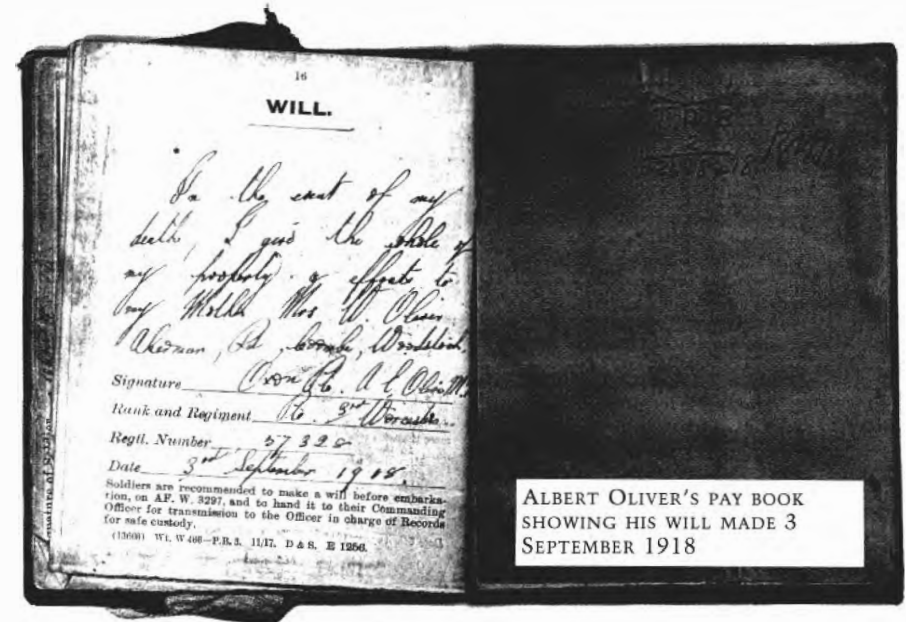 16
WILL.
In the event of my
death, I give the whole of
my property & effects to
my Mother Mrs W. Oliver
Akerman, Rd, Combe, Woodstock.
Signature Oxon Pte. A E Oliver
Rank and Regiment Pte. 3rd Worcesters.
Regtl. Number 57328
Date 3rd September 1918.
Soldiers are recommended to make a will before embarka-
tion, on AF. W. 3297, and to hand it to their Commanding
Officer for transmission to the Officer in charge of Records
for safe custody.
(13600) Wt. W 466—P.B. 3. 11/17. D & S. E 1256.
ALBERT OLIVER'S PAY BOOK
SHOWING HIS WILL MADE 3
SEPTEMBER 1918